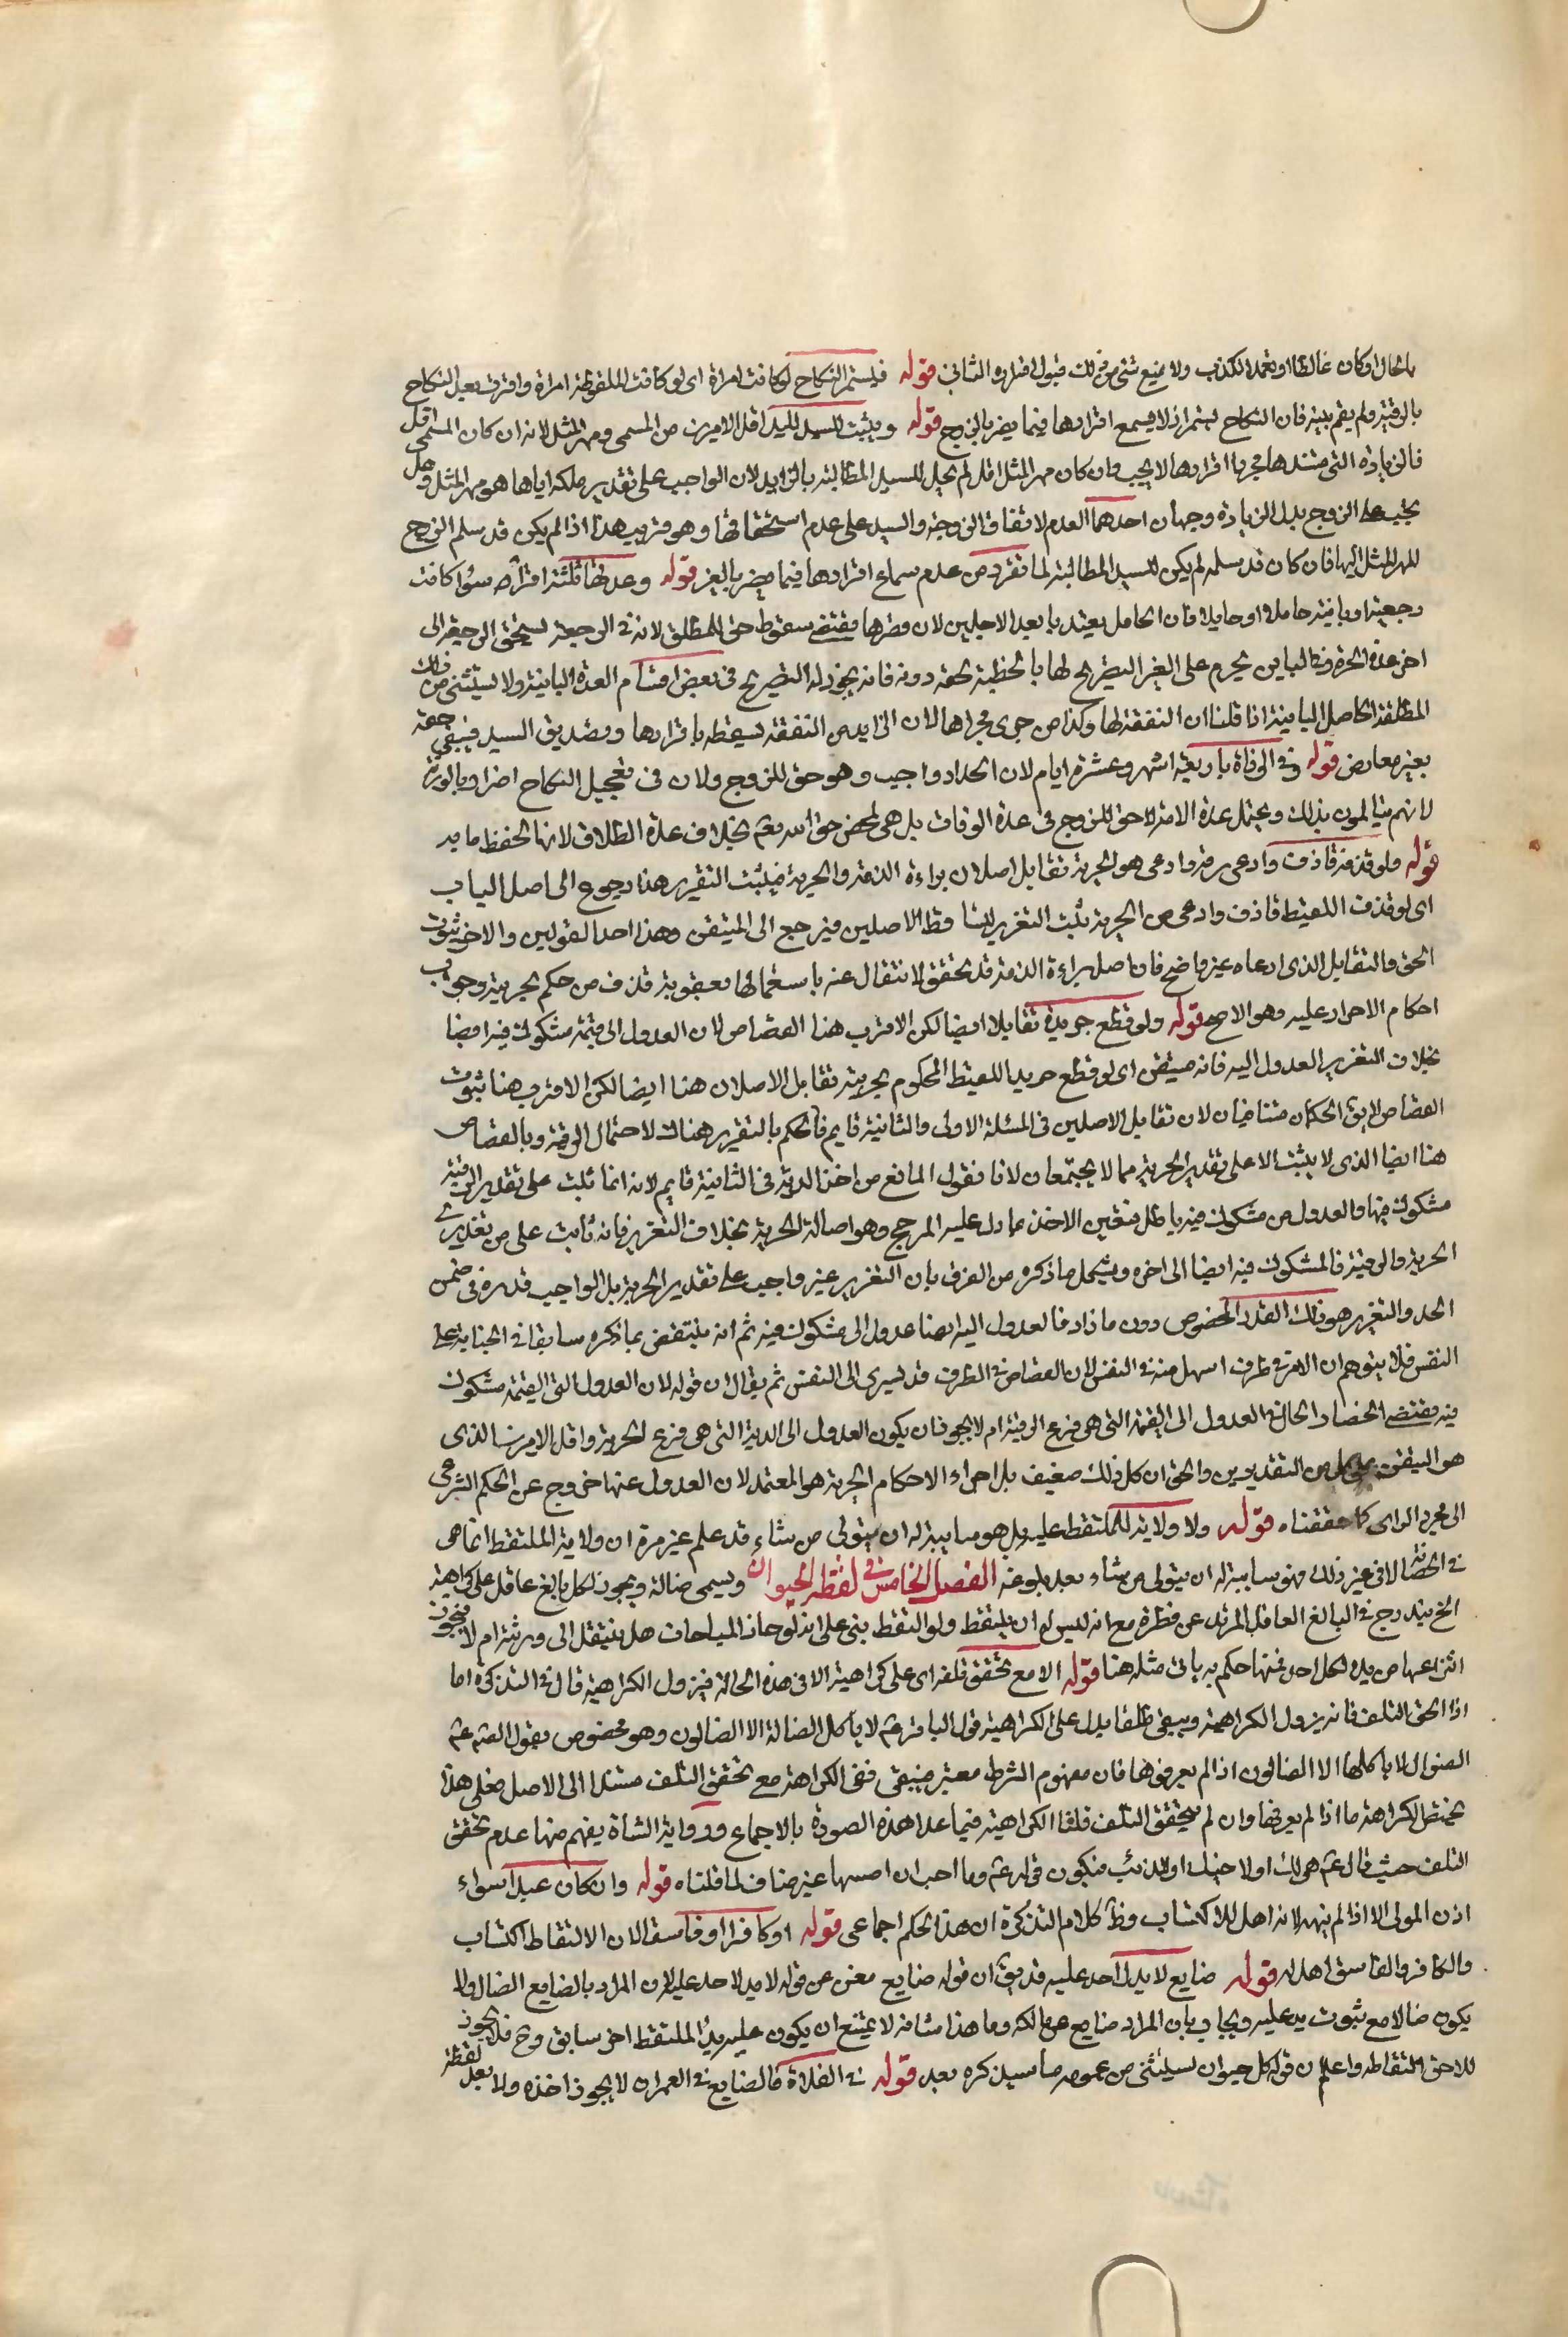 بالحال او كان غالطا او تعمد الكذب ولا يمنع شئ من ذلك قبول اقراره الثانى قوله فيستمر النكاح لو كانت امراة اى لو كانت الملقوطة امراة واقرت بعد النكاح
بالرقية ولم يقم بينة فان النكاح يستمر اذ لا يسمع اقرارها فيما يضر بالزوج قوله ويثبت للسيد اقل الامرين من المسمى ومهر المثل لانه ان كان المسمى اقل
فالزيادة التى مستندها مجرد اقرارها لا يجب وان كان مهر المثل اقل لم يحل للسيد المطالبة بالزايد لان الواجب على تقدير ملكه اياها هو مهر المثل وهل
يجب على الزوج بذل الزيادة وجهان احدهما العدم لاتفاق الزوجة والسيد على عدم استحقاقها وهو قريب هذا اذا لم يكن قد سلم الزوج
المهر المثل اليها فان كان قد سلمه لم يكن للسيد المطالبة لما تقرر من عدم سماع اقرارها فيما يضر بالغير قوله وعدتها ثلثة اقراء سواء كانت
رجعية او باينة حاملا او حايلا فان الحامل يعتد بابعد الاجلين لان وطرها مقتضى سقوط حق المطلق لانه فى الرجعة يستحق الرجعة الى
اخر عدة الحرة وفى الباين يحرم على الغير التصريح لها بالخطبة لحقه دونه فانه يجوز له التصريح فى بعض اقسام العدة الباينة ولا يستثنى من ذلك
المطلقة الحامل الباينة اذا قلنا ان النفقة لها وكذا من جرى مجراها لان الزايد من النفقة يسقط باقرارها وتصديق السيد فيبقى حقه
بغير معارض قوله وفى الوفاة باربعة اشهر وعشرة ايام لان الحداد واجب وهو حق للزوج ولان فى تعجيل النكاح اضرارا بالورثة
لانهم يتالمون بذلك ويحتمل عدة الامة لا حق للزوج فى عدة الوفات بل هى لمحض حق الله تعم بخلاف عدة الطلاق لانها لحفظ مايه
قوله ولو قذفه قاذف وادعى رقه وادعى هو الحرية تقابل اصلان براءة الذمة والحرية فيثبت التعزير هذا رجوع الى اصل الباب
اى لو قذف اللقيط قاذف وادعى الحرية يثبت التعزير لتساقط الاصلين فيرجع الى المتيقن وهذا احد القولين والاخر ثبوت
الحق والتقابل الذى ادعاه غير واضح فان اصل براءة الذمة قد تحقق الانتقال عنه باستغمالها بعقوبة قذف من حكم بحريته وجرى
احكام الاحرار عليه وهو الاصح قوله ولو قطع حر يده تقابلا ايضا لكن الاقرب هنا القصاص لان العدول الى قيمة مشكوك فيه ايضا
بخلاف التعزير العدول اليه فانه متيقن اى لو قطع حر يد اللقيط المحكوم بحريته تقابل الاصلان هنا ايضا لكن الاقرب هنا ثبوت
القصاص لا يق الحكمان متنافيان لان تقابل الاصلين فى المسئلة الاولى والثانية قايم فالحكم بالتعزير هناك لاحتمال الرقية وبالقصاص
هنا ايضا الذى لا يثبت الا على تقدير الحرية مما لا يجتمعان لانا نقول المانع من اخذ الدية فى الثانية قايم لانه انما يثبت على تقدير الرقية
مشكوك فيها والعدول من مشكوك فيه باطل فتعين الاخذ بما دل عليه المرجح وهو اصالة الحرية بخلاف التعزير فانه ثابت على من تقديرى
الحرية والرقية فالمشكوك فيه ايضا الى اخره ويشكل ما ذكره من الفرق بان التعزير غير واجب على تقدير الحرية بل الواجب قدره فى ضمن
الحد والتعزير هو ذلك القدر المخصوص دون ما زاد فالعدول اليه ايضا عدول الى مشكوك فيه ثم انه ينتقض بما ذكره سابقا فى الجناية على
النفس فلا يتوهم ان الامر فى طرف اسهل منه فى النفس لان القصاص فى الطرف قد يسرى الى النفس ثم يقال ان قوله لان العدول الى القيمة مشكوك
فيه يقتضى انحصار الحال فى العدول الى القيمة التى هى فرع الرقية ام لا يجوز ان يكون العدول الى الدية التى هى فرع الحرية واقل الامرين الذى
هو المتيقن على كل من التقديرين والحق ان كل ذلك ضعيف بل اجراء الاحكام الحرية هو المعتمد لان العدول عنها خروج عن الحكم الشرعى
الى مجرد الراى كما حققناه قوله ولا ولاية للملتقط عليه بل هو سايبة له ان يتولى من شاء قد علم غير مرة ان ولاية الملتقط انما هى
فى الحضانة لا فى غير ذلك فهو سايبة له ان يتولى من شاء بعد بلوغه الفصل الخامس فى لقطة الحيوان ويسمى ضالة ويجوز لكل بالغ عاقل على كراهية
الخ يندرج فى البالغ العاقل المرتد عن فطرة مع انه ليس له ان يلتقط ولو التقط بنى على انه لو حاز المباحات هل ينتقل الى ورثته ام لا فيجوز
انتزاعها من يده لكل احد فمهما حكم به ياتى مثله هنا قوله الا مع تحقق تلفه اى على كراهية الا فى هذه الحالة فيزول الكراهية قال فى التذكرة اما
اذا تحقق التلف فانه يزول الكراهية ويبقى طلقا يدل على الكراهية قول الباقر عم لا ياكل الضالة الا الضالون وهو مخصوص بقول الصم عم
الضوال لا ياكلها الا الضالون اذا لم يعرفوها فان مفهوم الشرط معتبر فينبغى نفى الكراهة مع تحقق التلف مستندا الى الاصل فعلى هذا
يختص الكراهة ما اذا لم يعرفها وان لم يتحقق التلف قلنا الكراهية فيما عدا هذه الصورة بالاجماع ورواية الشاة يفهم منها عدم تحقق
التلف حيث قال عم هى لك او لاخيك او للذئب فيكون قوله عم وما احب ان امسها غير مناف لما قلناه قوله وان كان عبدا سواء
اذن المولى الا اذا لم ينهه لانه اهل للاكتساب وظ كلام التذكرة ان هذا الحكم اجماعى قوله او كافرا او فاسقا لان الالتقاط اكتساب
والكافر والفاسق اهل له قوله ضايع لا يد لاحد عليه قد يق ان قوله ضايع مغن عن قوله لا يد لاحد عليه لان المراد بالضايع الضال ولا
يكون ضالا مع ثبوت يد عليه ويجاب بان المراد ضايع عن مالكه وما هذا شانه لا يمتنع ان يكون عليه يد الملتقط اخر سابق وح فلا يجوز
للاحق التقاطه واعلم ان قوله كل حيوان يستثنى من عمومه ما سيذكره بعد قوله فى الفلاة فالضايع فى العمران لا يجوز اخذه ولا يعد لقطة